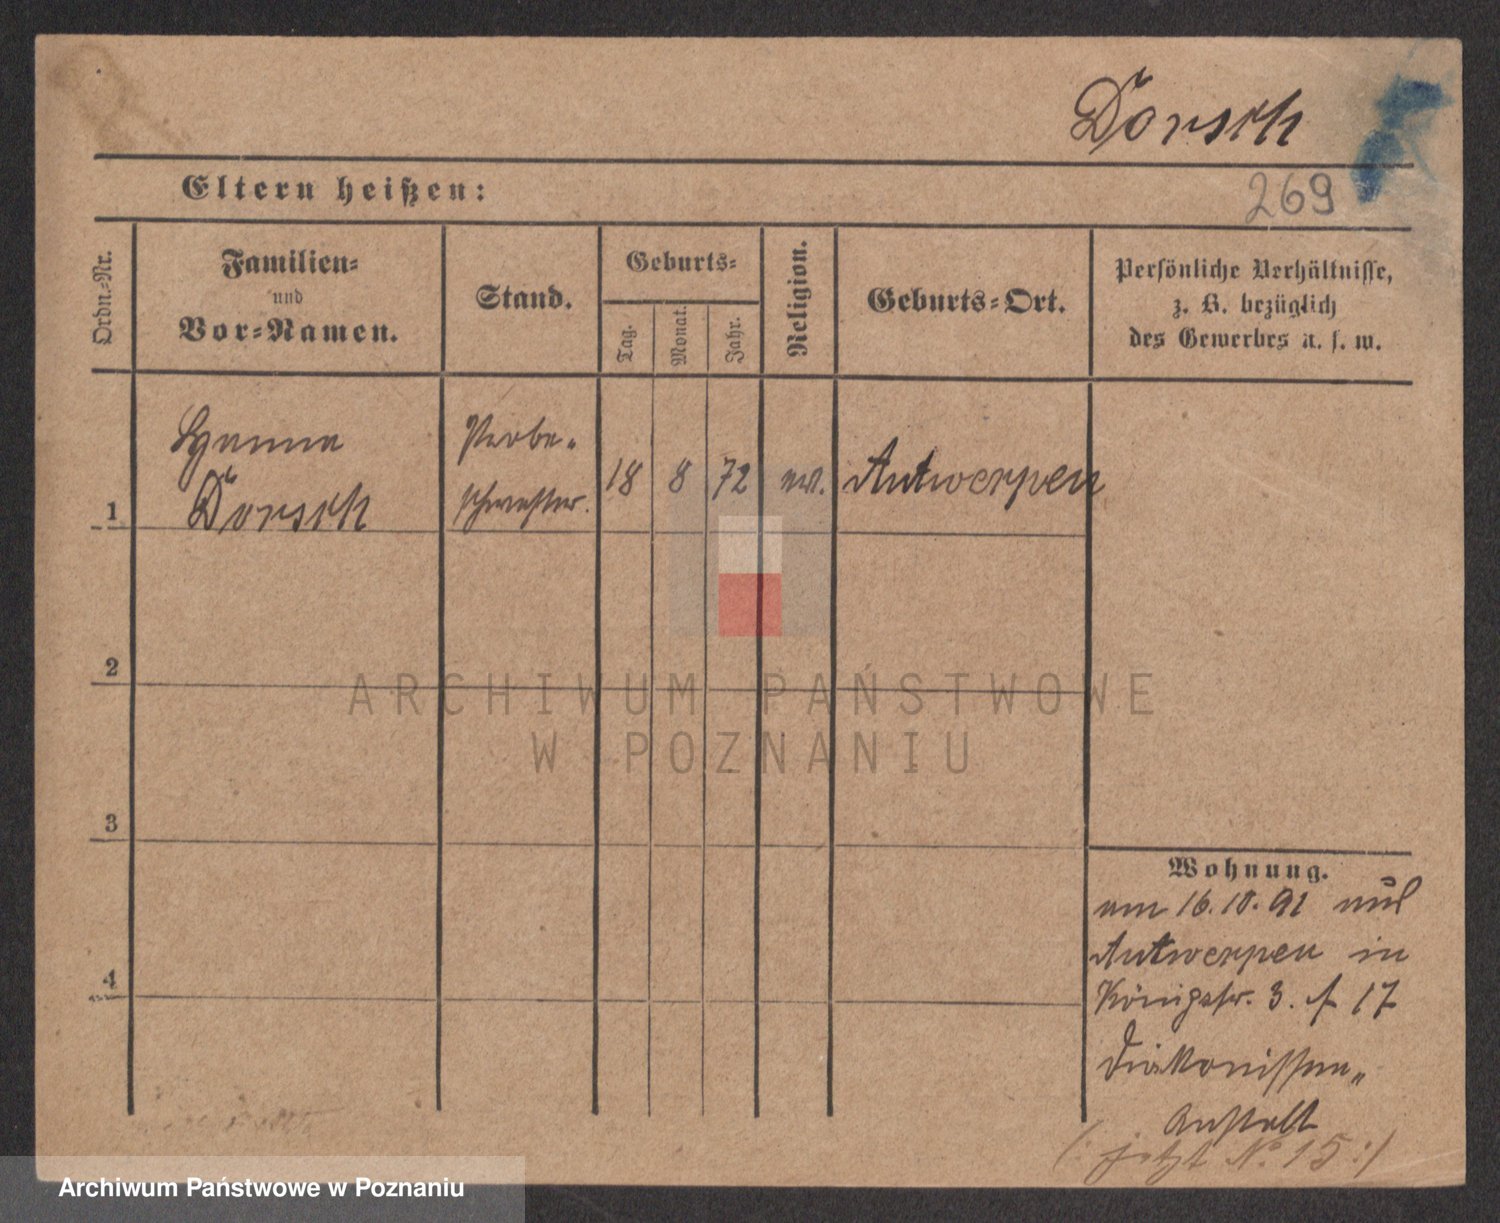 Dorsch
Eltern heißen:
269
Ordn.-Nr.
Familien-
und
Vor-Namen.
Stand.
Geburts-
Tag.
Monat.
Jahr.
Religion.
Geburts-Ort.
Persönliche Verhältnisse,
z. B. bezüglich
des Gewerbes u. s. w.
1
Hanna
Dorsch
Probe-
schwester.
18
8
72
ev.
Antwerpen
2
3
4
Wohnung.
am 16.10.91 aus
Antwerpen in
Königstr. 3. 17
Diakonissen-
Anstalt
(: jetzt No 15 :)
ARCHIWUM PAŃSTWOWE
W POZNANIU
Archiwum Państwowe w Poznaniu